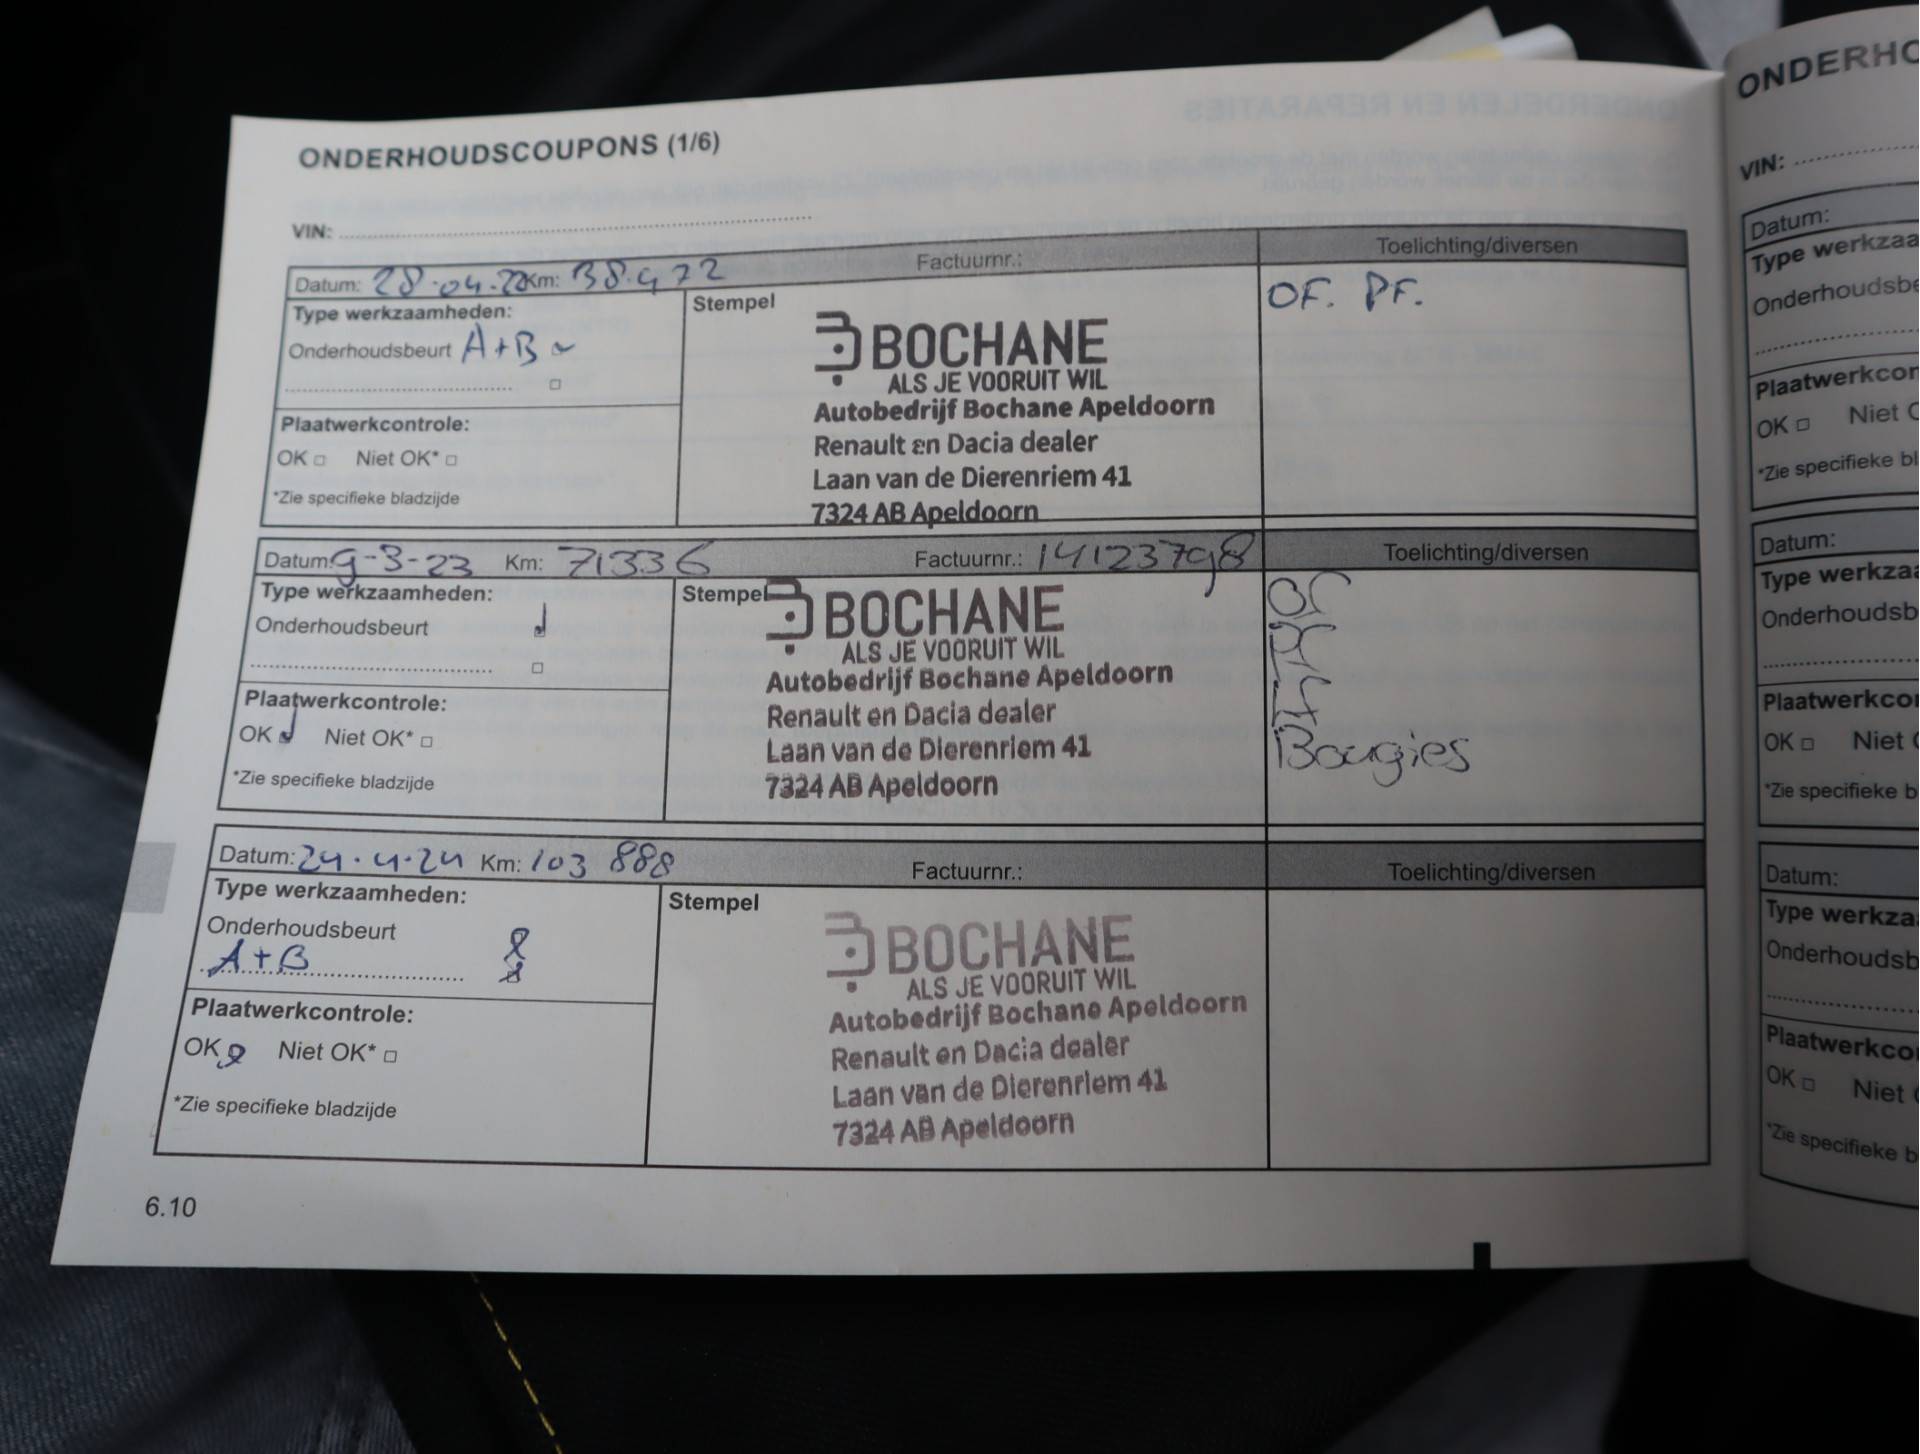 ONDERDELEN EN REPARATIES
ONDERHOUDSCOUPONS (1/6)
VIN:
Datum: 28-04-22 Km: 38.472 Factuurnr.: Toelichting/diversen
Type werkzaamheden:
Onderhoudsbeurt A+B
Stempel
OF. PF.
BOCHANE
ALS JE VOORUIT WIL
Autobedrijf Bochane Apeldoorn
Renault en Dacia dealer
Laan van de Dierenriem 41
7324 AB Apeldoorn
Plaatwerkcontrole:
OK Niet OK*
*Zie specifieke bladzijde
Datum: 9-3-23 Km: 71336 Factuurnr.: 14123798 Toelichting/diversen
Type werkzaamheden:
Onderhoudsbeurt
Stempel
BOCHANE
ALS JE VOORUIT WIL
Autobedrijf Bochane Apeldoorn
Renault en Dacia dealer
Laan van de Dierenriem 41
7324 AB Apeldoorn
OF
Bougies
Plaatwerkcontrole:
OK Niet OK*
*Zie specifieke bladzijde
Datum: 24.4.24 Km: 103 888 Factuurnr.: Toelichting/diversen
Type werkzaamheden:
Onderhoudsbeurt
A+B
Stempel
BOCHANE
ALS JE VOORUIT WIL
Autobedrijf Bochane Apeldoorn
Renault en Dacia dealer
Laan van de Dierenriem 41
7324 AB Apeldoorn
Plaatwerkcontrole:
OK Niet OK*
*Zie specifieke bladzijde
6.10
ONDERHO
VIN:
Datum:
Type werkzaa
Onderhoudsbe
Plaatwerkcon
OK Niet O
*Zie specifieke bl
Datum:
Type werkzaa
Onderhoudsb
Plaatwerkcon
OK Niet
*Zie specifieke b
Datum:
Type werkza
Onderhoudsb
Plaatwerkco
OK Niet
*Zie specifieke b